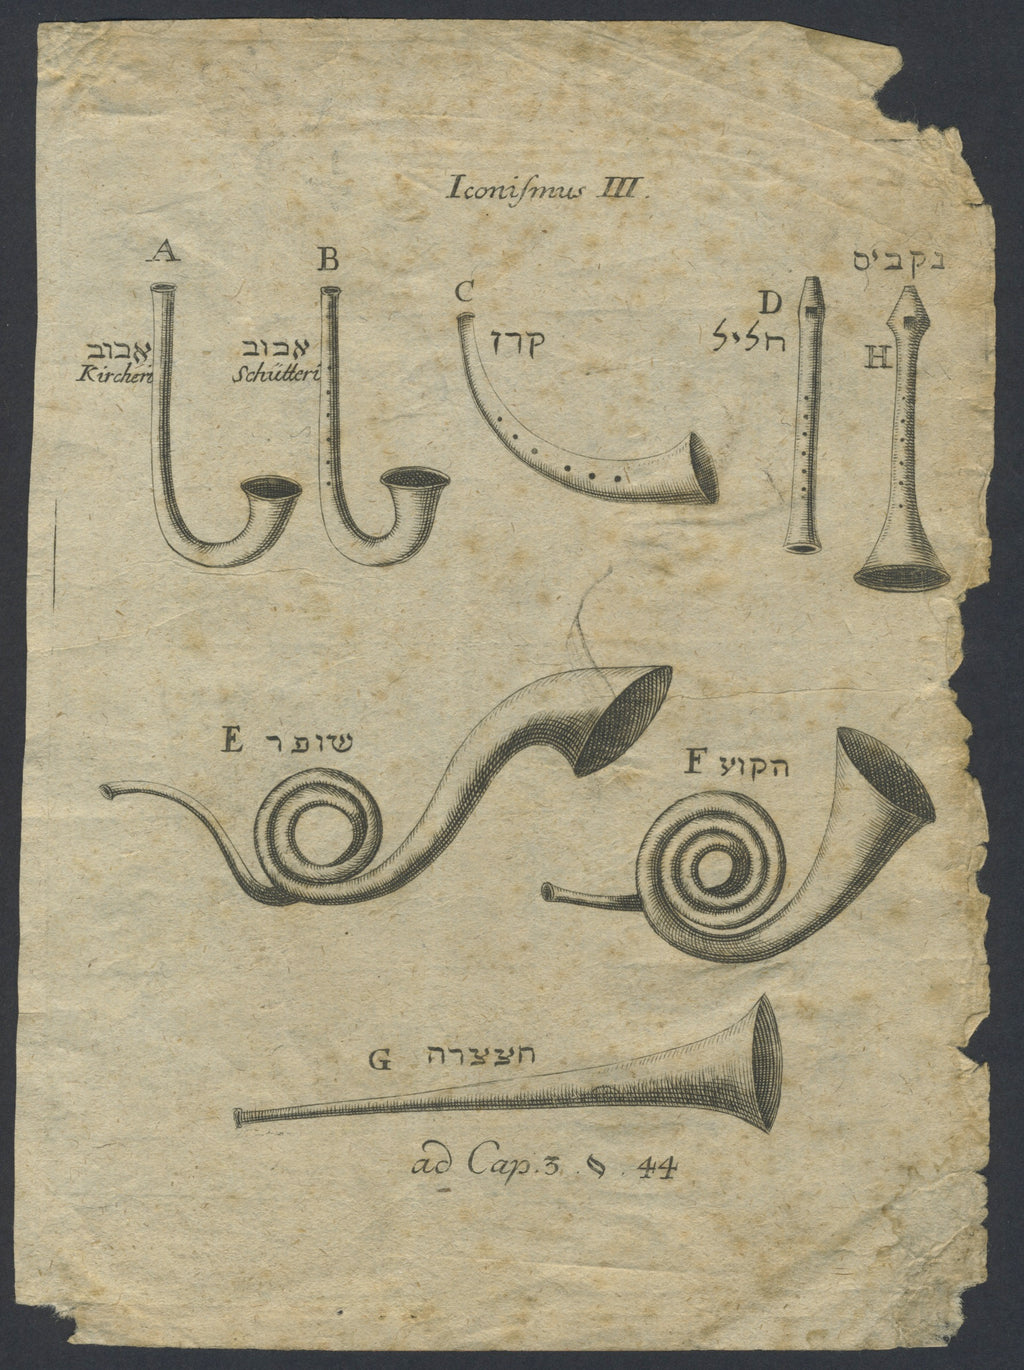 Iconiſmus III.
A
אבוב
Kircheri
B
אבוב
Schütteri
C
קרן
D
חליל
נקבים
H
E שופר
F הקוע
G חצצרה
ad Cap. 3. §. 44